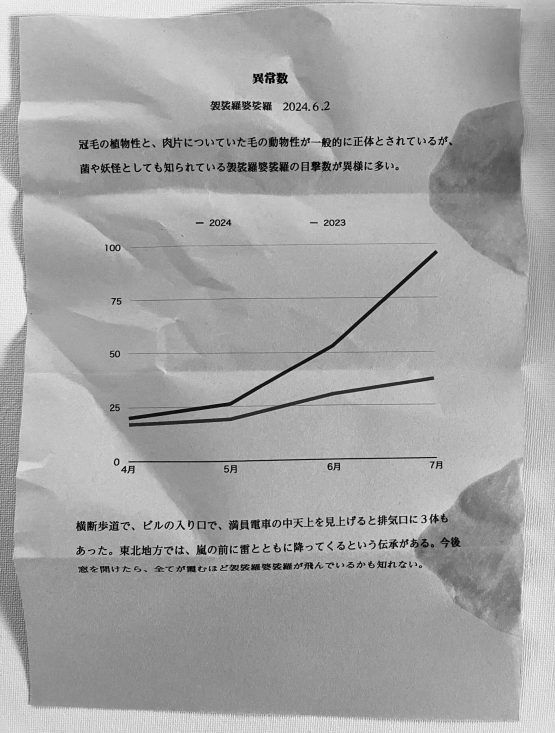 異常数
袈裟羅婆娑羅 2024.6.2
冠毛の植物性と、肉片についていた毛の動物性が一般的に正体とされているが、
菌や妖怪としても知られている袈裟羅婆娑羅の目撃数が異様に多い。
— 2024 — 2023
100
75
50
25
0
4月 5月 6月 7月
横断歩道で、ビルの入り口で、満員電車の中天上を見上げると排気口に3体も
あった。東北地方では、嵐の前に雷とともに降ってくるという伝承がある。今後
窓を開けたら、全てが霞むほど袈裟羅婆娑羅が飛んでいるかも知れない。